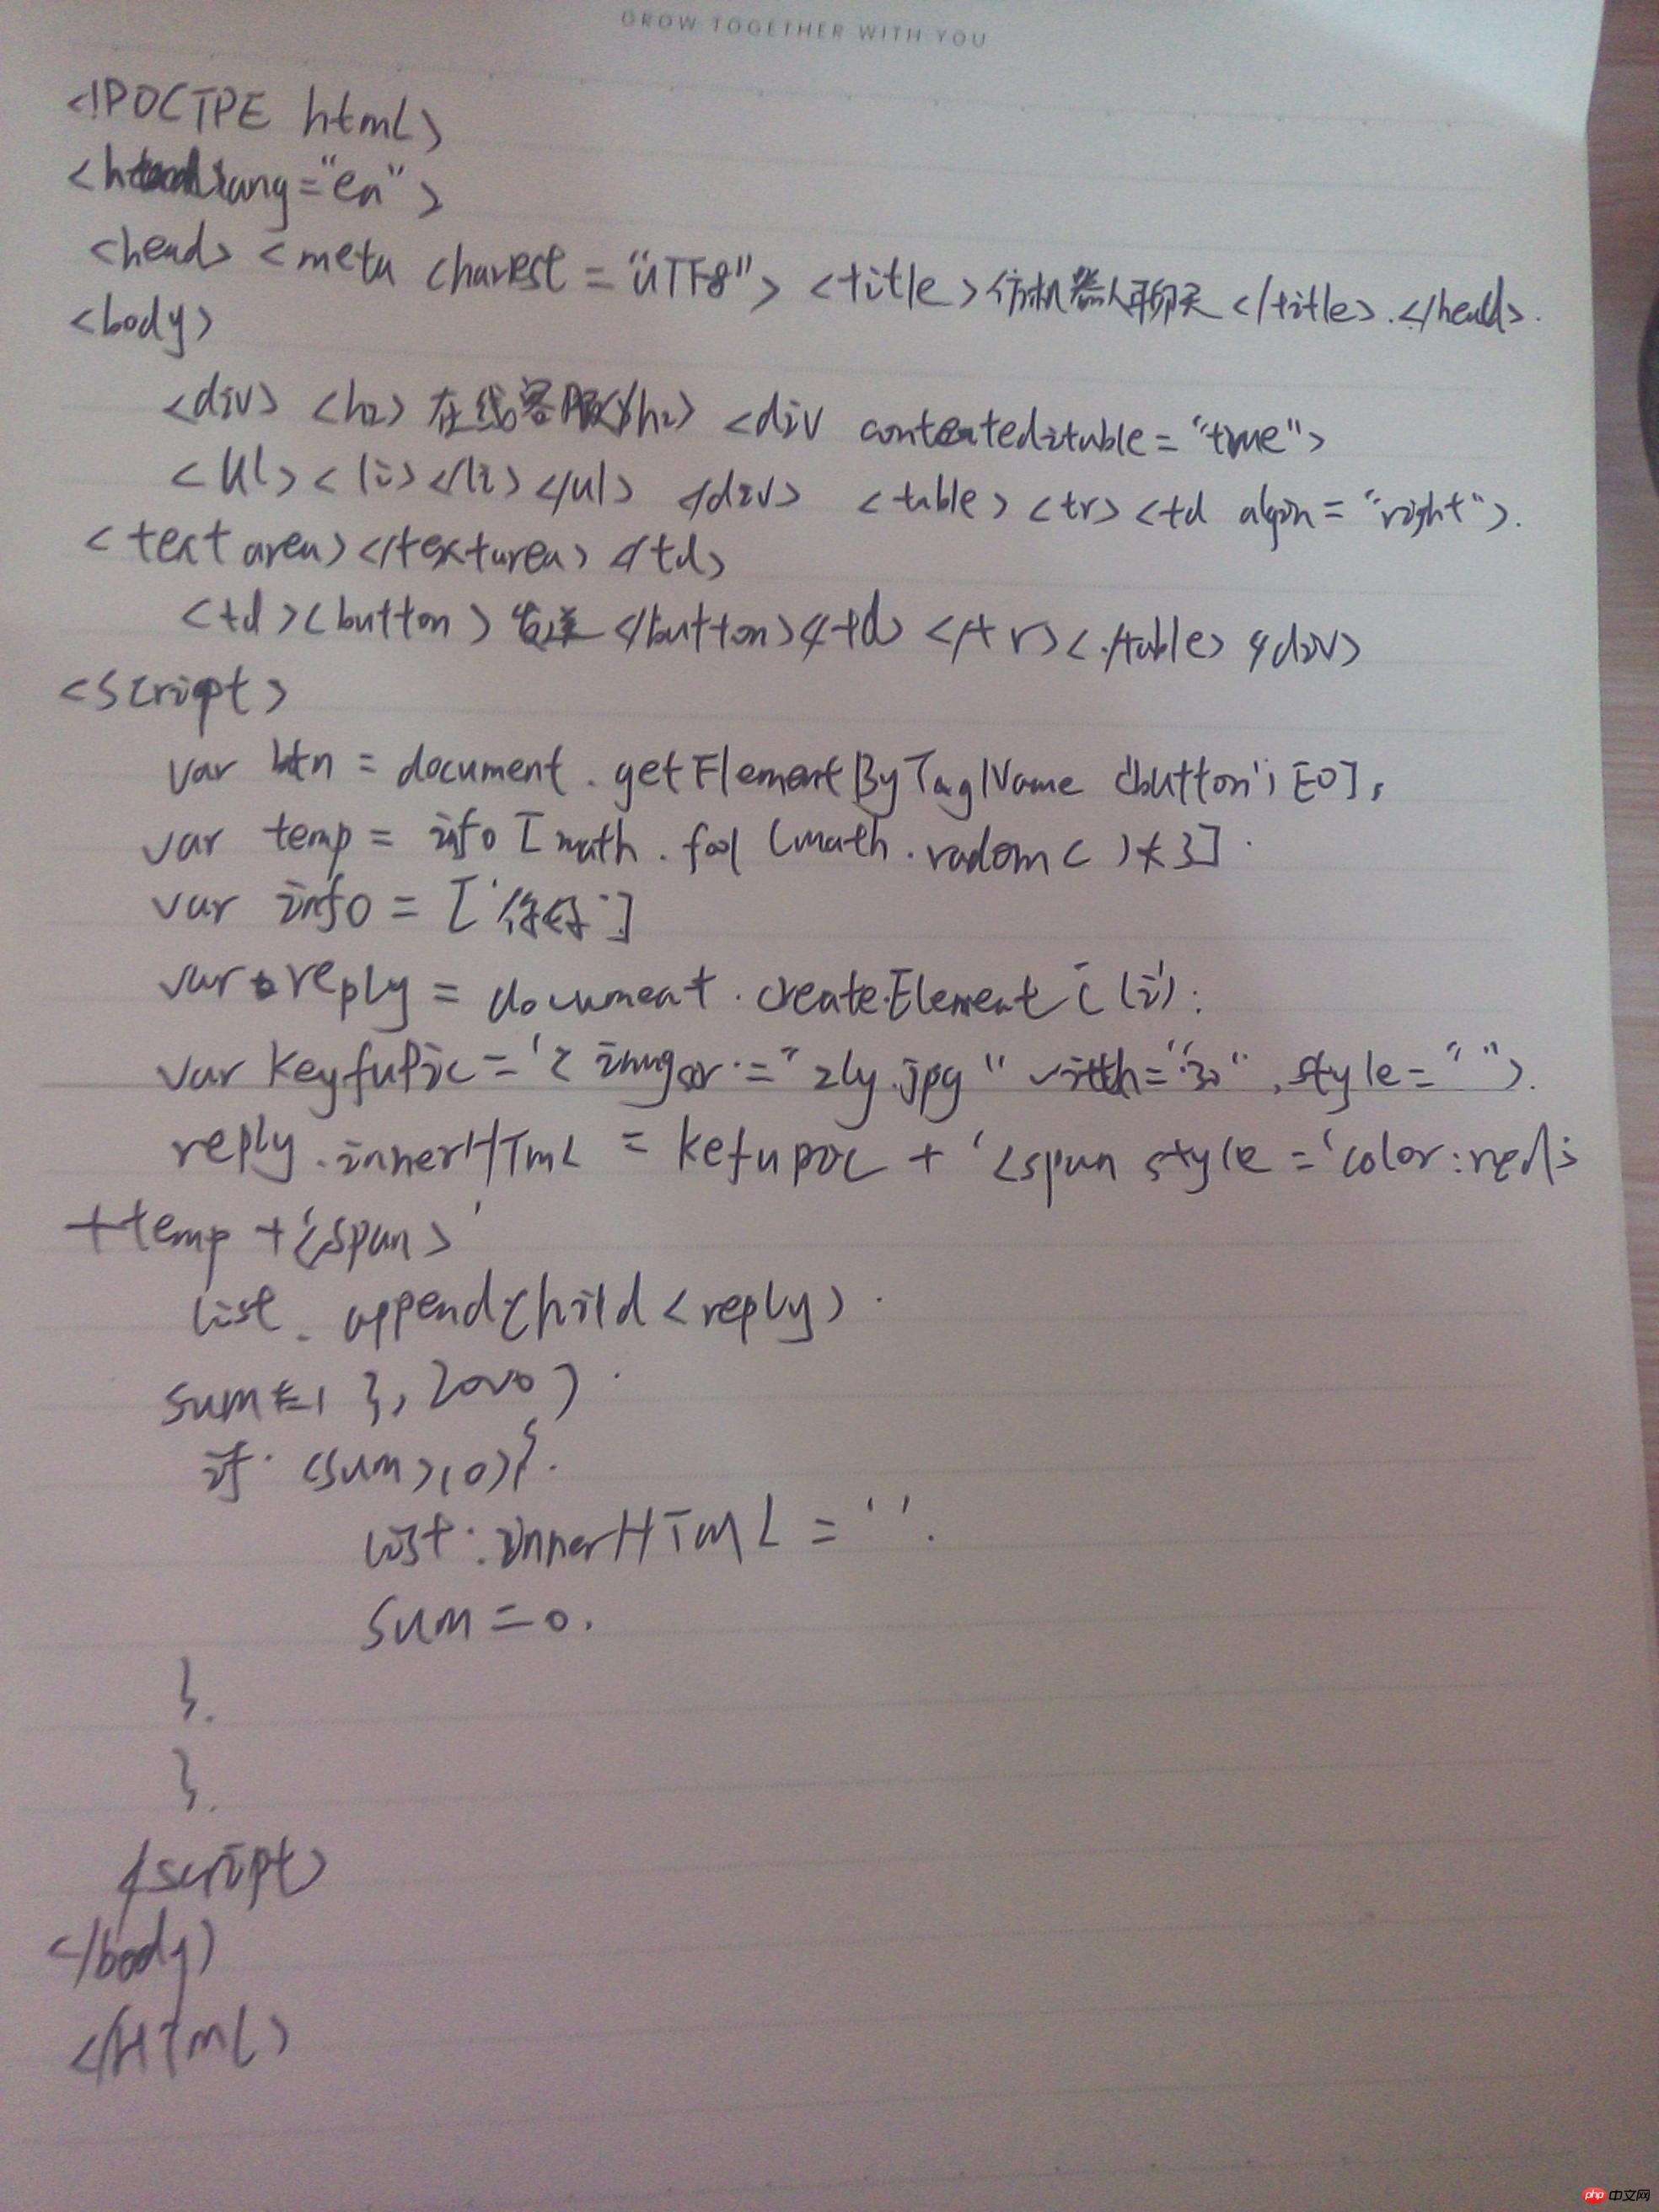 GROW TOGETHER WITH YOU
<!POCTPE html>
lang="en">
<head> <meta charest="UTF8"> <title>仿机器人聊天</title>.</head>.
<body>
<div> <h2>在线客服</h2> <div contenteditable="true">
<ul><li></li></ul> </div> <table><tr><td algin="right">.
<textarea></textarea></td>
<td><button>发送</button></td></tr><./table></div>
<script>
var btn = document.getElementByTagName ('button')[0];
var temp = info [math.fool (math.radom()*3].
var info = ['你好']
var reply = document.createElement('li').
var keyfuPic='< imgsr="zly.jpg" width="30", style=" ">.
reply.innerHTML = kefupic + '<span style='color:red;
+temp+'<span>'
list.appendChild<reply>.
sum+=1 },2000).
if (sum>10){.
list.innerHTML=''.
sum=0.
}.
}.
</script>
</body>
</HTML>
php 中文网